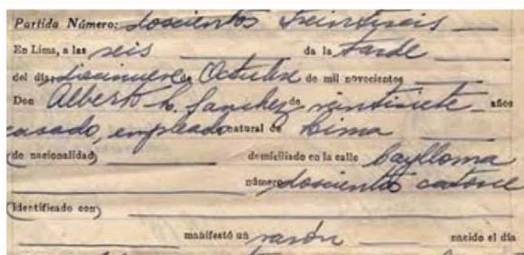 Partida Número: doscientos treintiseis
En Lima, a las seis de la tarde
del día, diecinueve de Octubre de mil novecientos
Don Alberto L. Sanchez de veintisiete años
casado, empleado natural de Lima
(de nacionalidad) domiciliado en la calle Caylloma
número doscientos catorce
(Identificado con)
manifestó un varón nacido el día